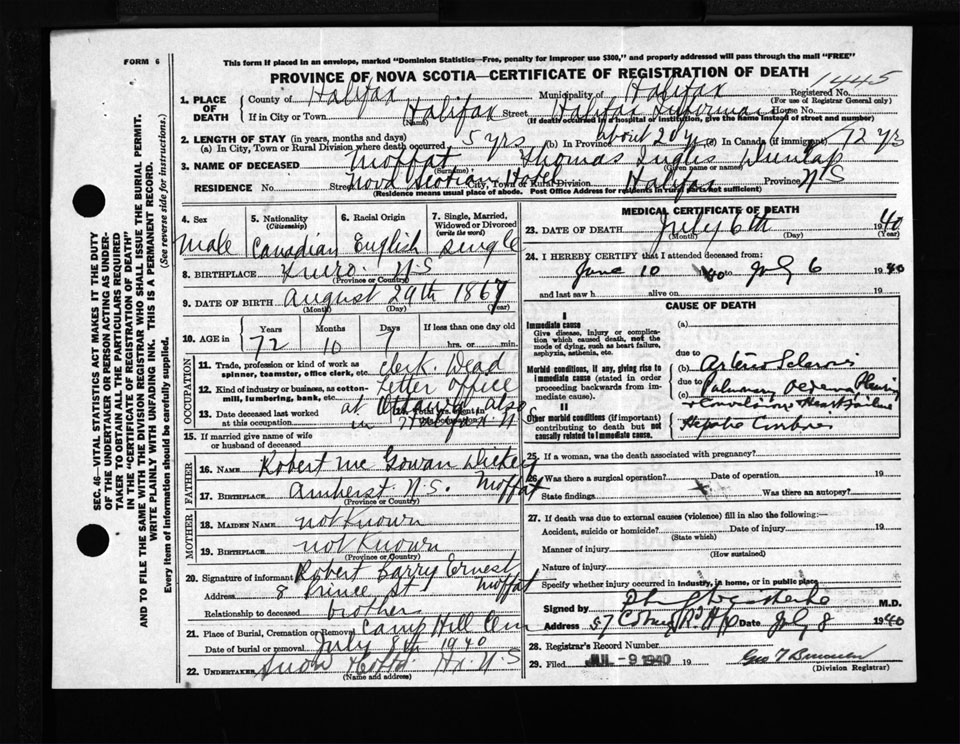 FORM 6
This form if placed in an envelope, marked "Dominion Statistics—Free, penalty for improper use $300," and properly addressed will pass through the mail "FREE"
PROVINCE OF NOVA SCOTIA—CERTIFICATE OF REGISTRATION OF DEATH
1445
1. PLACE OF DEATH
County of Halifax Municipality of Halifax Registered No.
(For use of Registrar General only)
If in City or Town Halifax Street Halifax Infirmary House No.
(Name) (If death occurred in a hospital or institution, give the name instead of street and number)
2. LENGTH OF STAY (in years, months and days)
(a) In City, Town or Rural Division where death occurred 5 yrs (b) In Province about 20 y (c) In Canada (if immigrant) 72 yrs
3. NAME OF DECEASED Moffat Thomas Inglis Dunlap
(Surname) (Given name or names)
RESIDENCE No. Street Nova Scotian Hotel City, Town or Rural Division Halifax Province N S
(Residence means usual place of abode. Post Office Address for residents in rural parts not sufficient)
SEC. 46—VITAL STATISTICS ACT MAKES IT THE DUTY OF THE UNDERTAKER OR PERSON ACTING AS UNDERTAKER TO OBTAIN ALL THE PARTICULARS REQUIRED IN THE "CERTIFICATE OF REGISTRATION OF DEATH" AND TO FILE THE SAME WITH THE DIVISION REGISTRAR WHO SHALL ISSUE THE BURIAL PERMIT. WRITE PLAINLY WITH UNFADING INK. THIS IS A PERMANENT RECORD.
Every item of Information should be carefully supplied. (See reverse side for instructions.)
4. Sex
male
5. Nationality
(Citizenship)
Canadian
6. Racial Origin
English
7. Single, Married, Widowed or Divorced
(write the word)
single
8. BIRTHPLACE Truro N S
(Province or Country)
9. DATE OF BIRTH August 29th 1867
(Month) (Day) (Year)
10. AGE in
Years Months Days If less than one day old
72 10 7 hrs. or min.
OCCUPATION
11. Trade, profession or kind of work as spinner, teamster, office clerk, etc. clerk Dead
12. Kind of industry or business, as cotton-mill, lumbering, bank, etc. Letter office
13. Date deceased last worked at this occupation at Ottawa also in Halifax N S
15. If married give name of wife or husband of deceased
FATHER
16. NAME Robert Mc Gowan Dickey Moffat
17. BIRTHPLACE Amherst N.S.
(Province or Country)
MOTHER
18. MAIDEN NAME not Known
19. BIRTHPLACE not Known
(Province or Country)
20. Signature of informant Robert Barry Ernest Moffat
Address 8 Prince St
Relationship to deceased brother
21. Place of Burial, Cremation or Removal Camp Hill Cem
Date of burial or removal July 8th 1940
22. UNDERTAKER Snow Hx. N S
(Name and address)
MEDICAL CERTIFICATE OF DEATH
23. DATE OF DEATH July 6th 1940
(Month) (Day) (Year)
24. I HEREBY CERTIFY that I attended deceased from:
June 10 40 to July 6 1940
and last saw h alive on 19
CAUSE OF DEATH
I
Immediate cause
Give disease, injury or complication which caused death, not the mode of dying, such as heart failure, asphyxia, asthenia, etc.
(a)
due to
Morbid conditions, if any, giving rise to immediate cause (stated in order proceeding backwards from immediate cause).
(b) Arterio Sclerosis
due to
(c) Pulmonary Oedema Pleurisy
+ Convulsions Heart Failure
II
Other morbid conditions (if important) contributing to death but not causally related to immediate cause.
Hepatic
25. If a woman, was the death associated with pregnancy?
26. Was there a surgical operation? Date of operation 19
State findings Was there an autopsy?
27. If death was due to external causes (violence) fill in also the following:—
Accident, suicide or homicide? Date of injury 19
(State which)
Manner of injury
(How sustained)
Nature of injury
Specify whether injury occurred in industry, in home, or in public place
Signed by M.D.
Address 57 Date July 8 1940
28. Registrar's Record Number
29. Filed JUL - 9 1940 19
(Division Registrar)